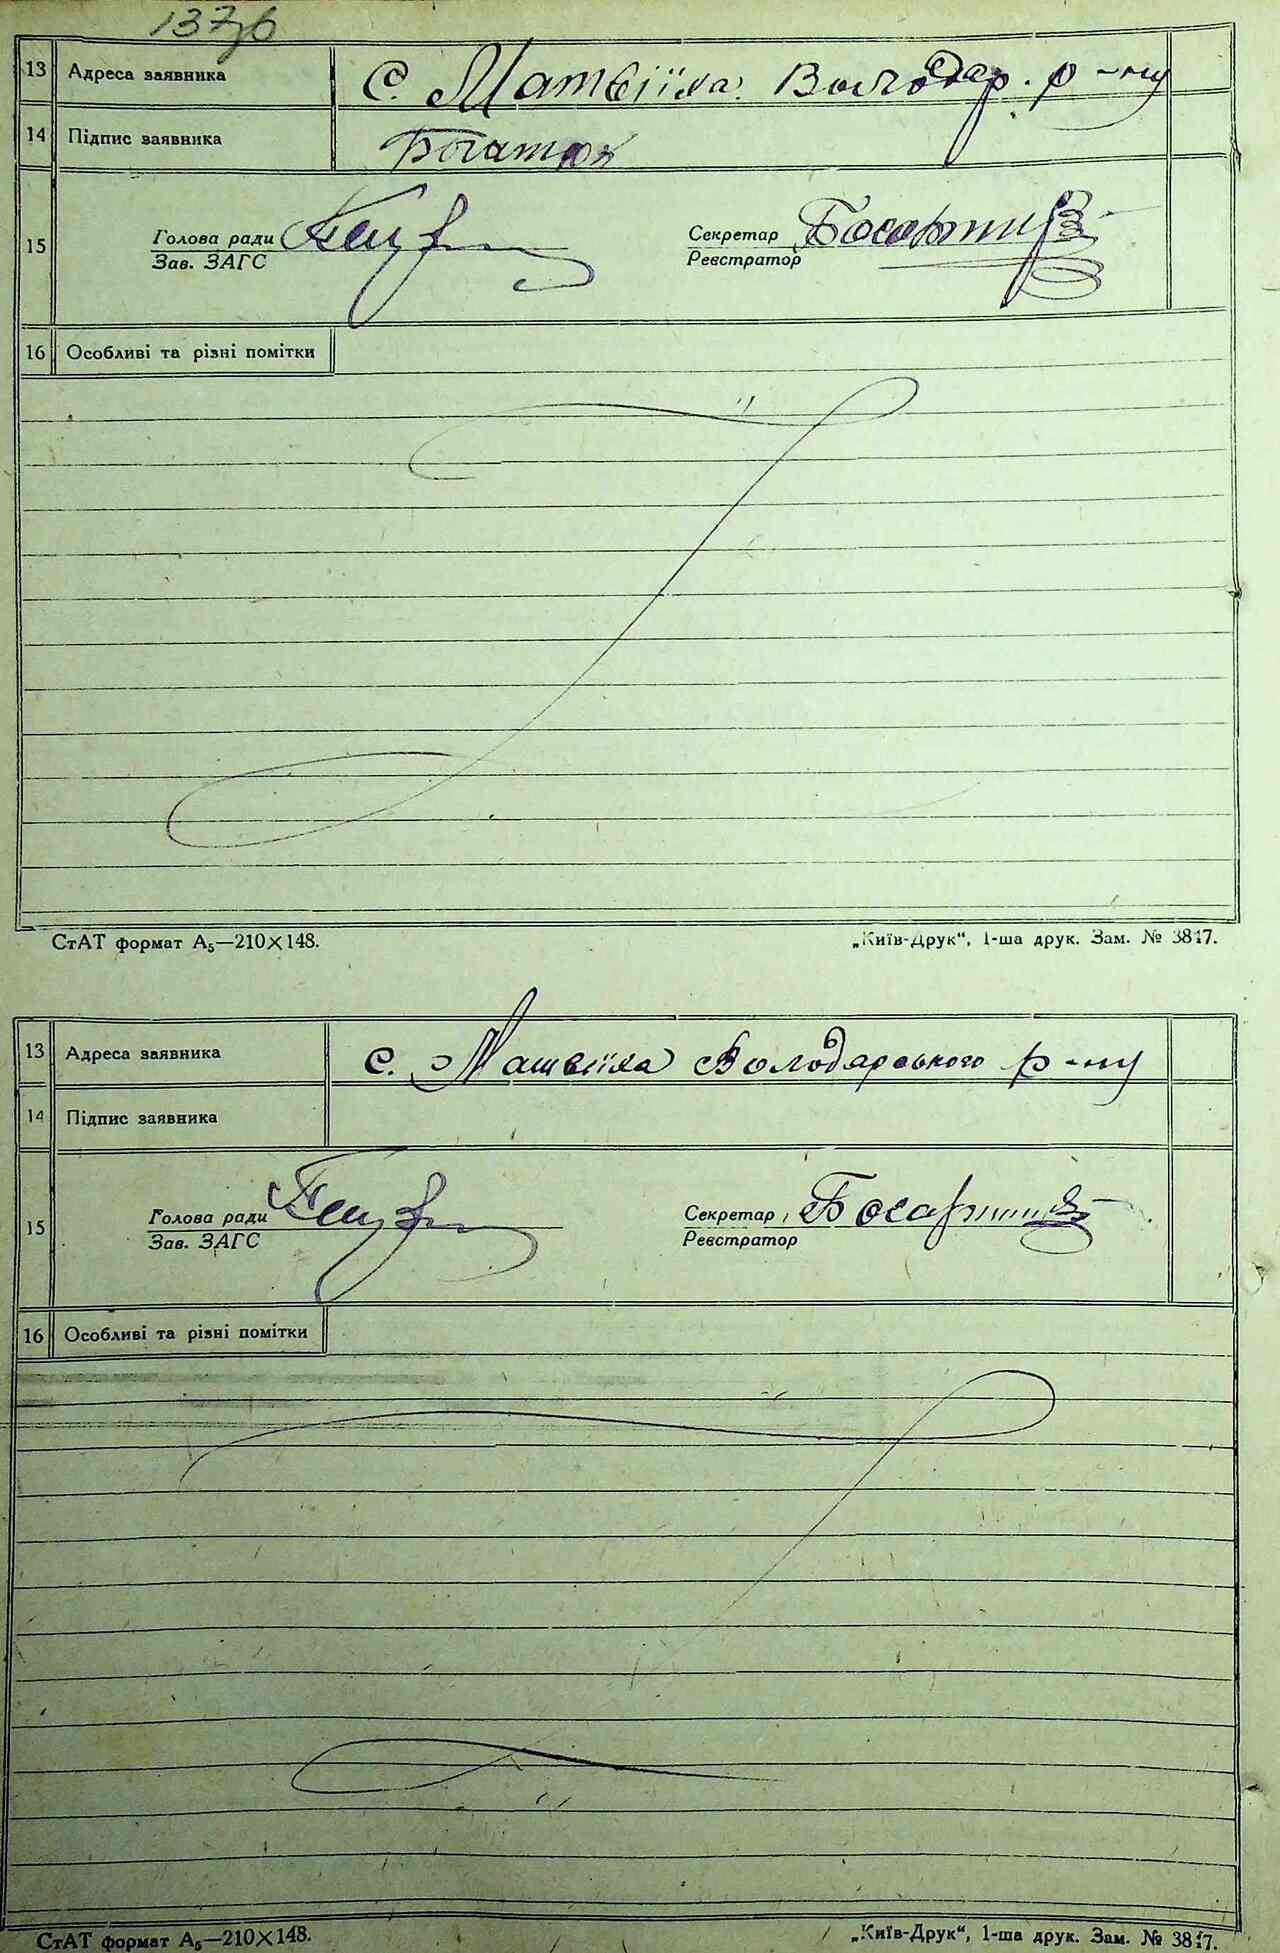 13 Адреса заявника с. Матвіїха Володар. р-ну
14 Підпис заявника Богатюк
15 Голова ради Секретар
Зав. ЗАГС Реєстратор
16 Особливі та різні помітки
СтАТ формат А₅—210×148. „Київ-Друк“, 1-ша друк. Зам. № 3847.
13 Адреса заявника с. Матвіїха Володарського р-ну
14 Підпис заявника
15 Голова ради Секретар
Зав. ЗАГС Реєстратор
16 Особливі та різні помітки
СтАТ формат А₅—210×148. „Київ-Друк“, 1-ша друк. Зам. № 3847.